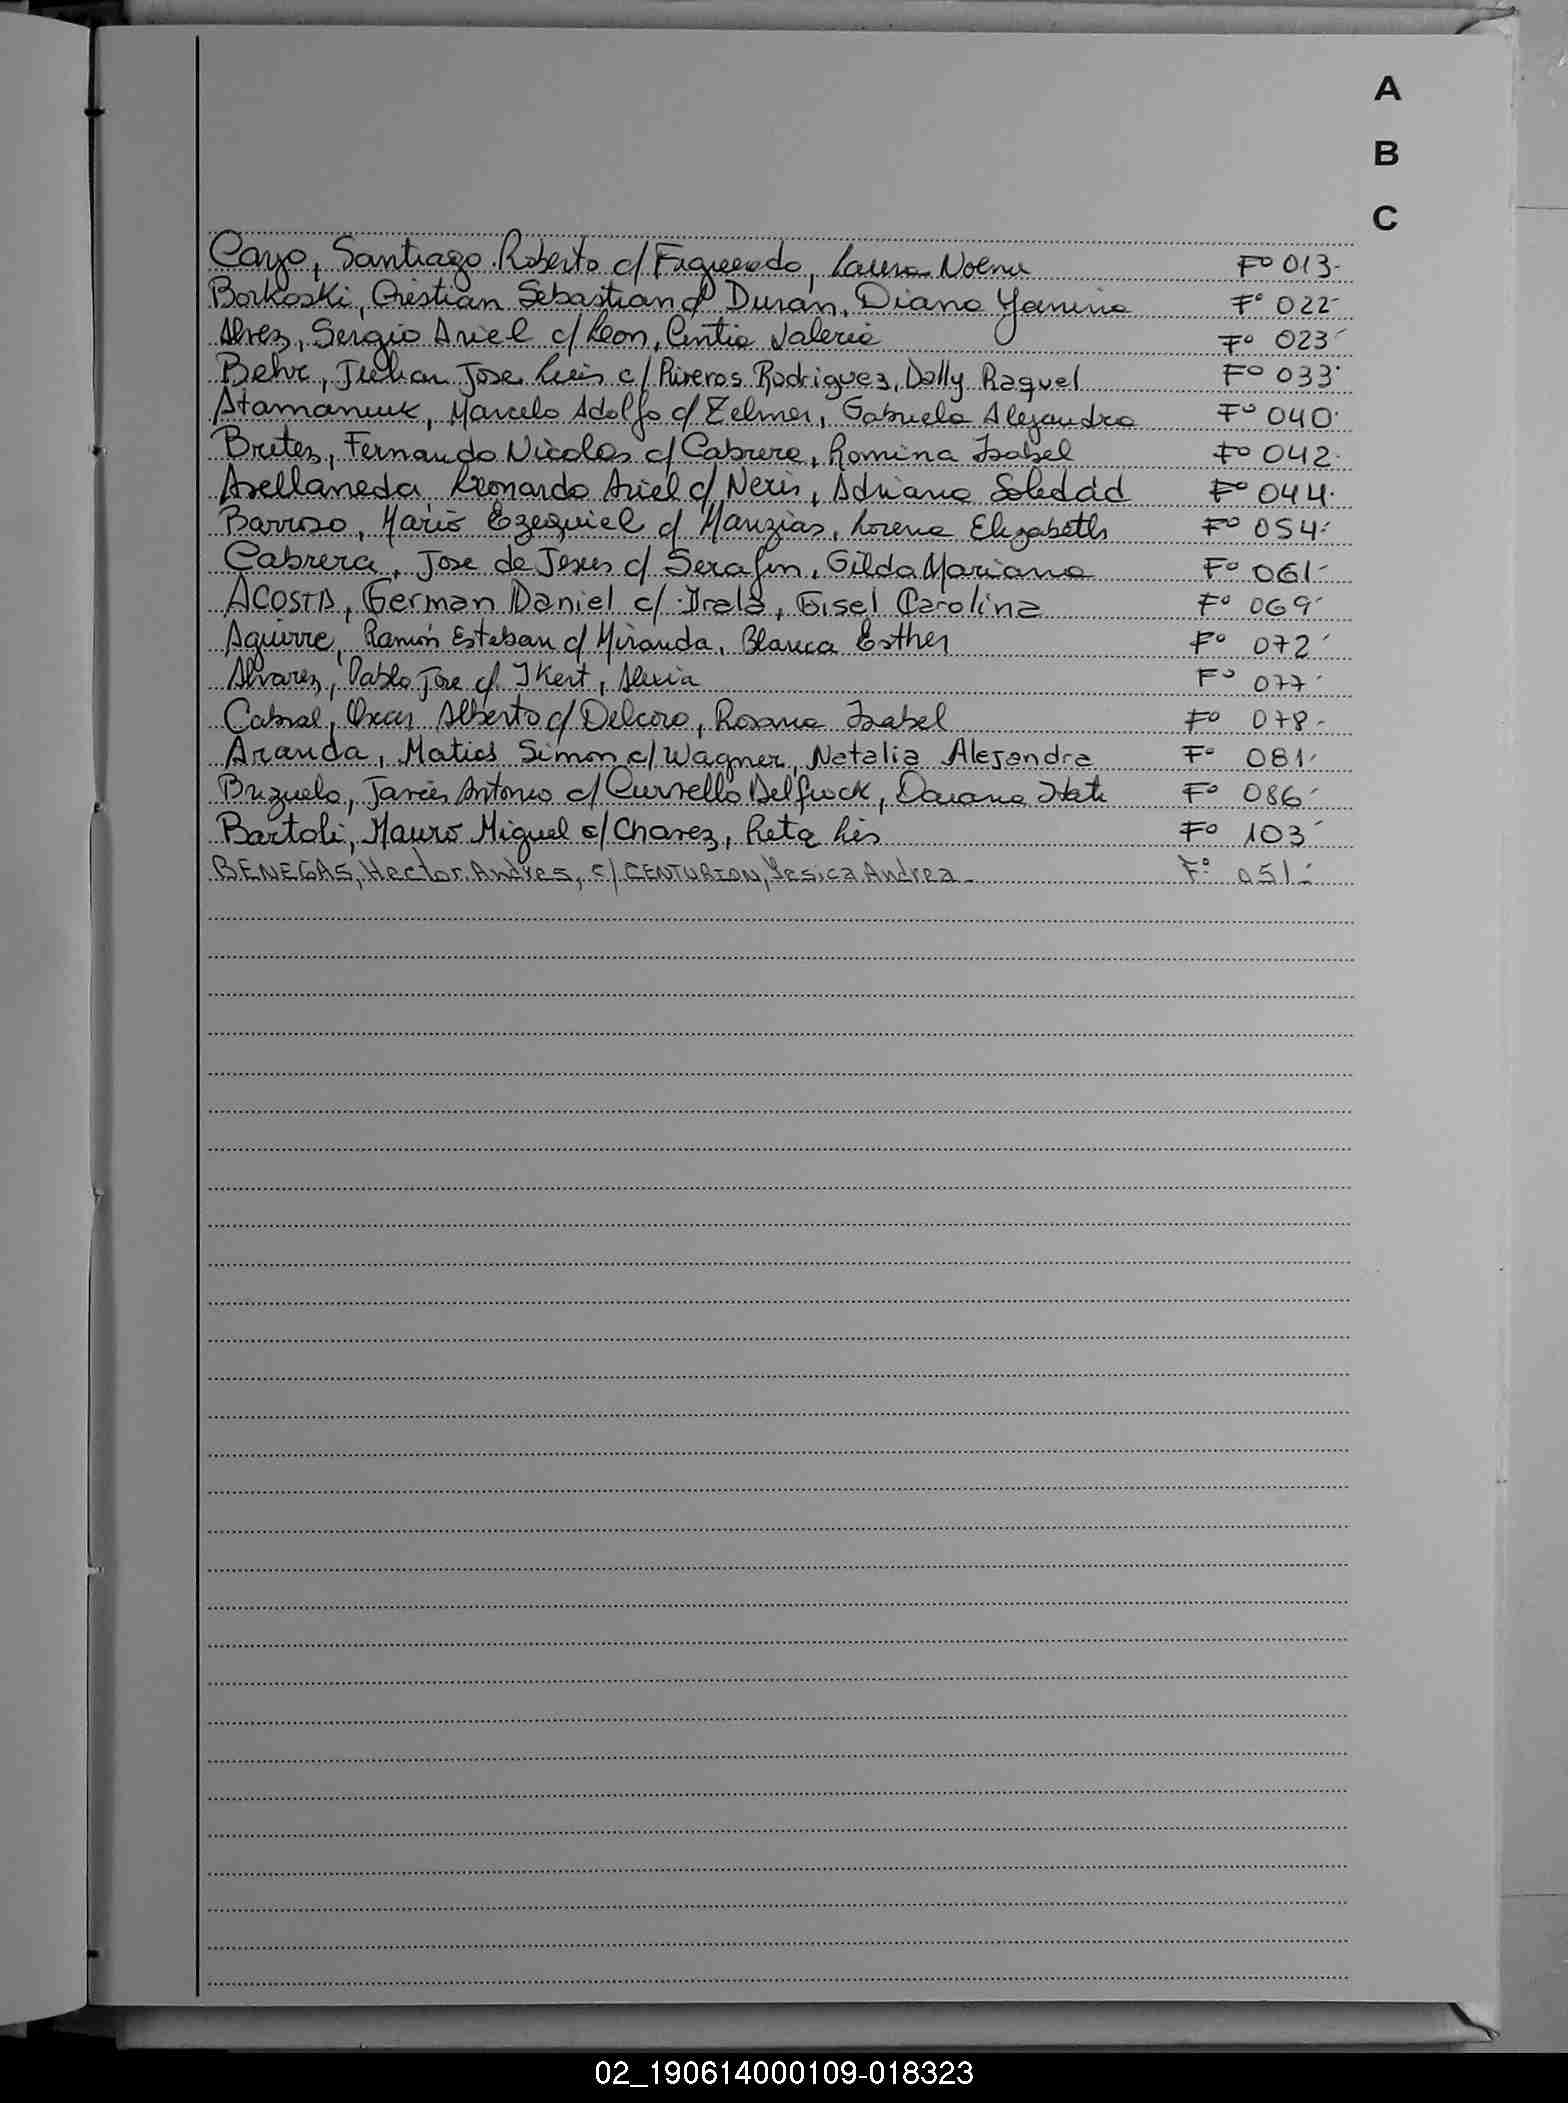 A
B
C
Cayo, Santiago Roberto c/ Figueredo, Laura Noemi Fº 013-
Borkoski, Cristian Sebastian c/ Duran, Diana Yanina Fº 022-
Alvez, Sergio Ariel c/ Leon, Cintia Valeria Fº 023-
Behr, Julian Jose Luis c/ Riveros Rodriguez, Dolly Raquel Fº 033-
Atamaniuk, Marcelo Adolfo c/ Zelmer, Gabriela Alejandra Fº 040-
Britez, Fernando Nicolas c/ Cabrera, Romina Isabel Fº 042-
Avellaneda Leonardo Ariel c/ Neris, Adriana Soledad Fº 044-
Barroso, Mario Ezequiel c/ Manzias, Lorena Elizabeth Fº 054-
Cabrera, Jose de Jesus c/ Serafin, Gilda Mariana Fº 061-
ACOSTA, German Daniel c/ Irala, Gisel Carolina Fº 069-
Aguirre, Ramón Esteban c/ Miranda, Blanca Esther Fº 072-
Alvarez, Pablo Jose c/ Ikert, Alexia Fº 077-
Cabral, Oscar Alberto c/ Delcoro, Rosana Isabel Fº 078-
Aranda, Matias Simon c/ Wagner, Natalia Alejandra Fº 081-
Brizuela, Javier Antonio c/ Daiana Fº 086-
Bartoli, Mauro Miguel c/ Chavez, Lis Fº 103-
BENEGAS, Hector Andres, c/ CENTURION, Yesica Andrea- Fº 051-
02_190614000109-018323